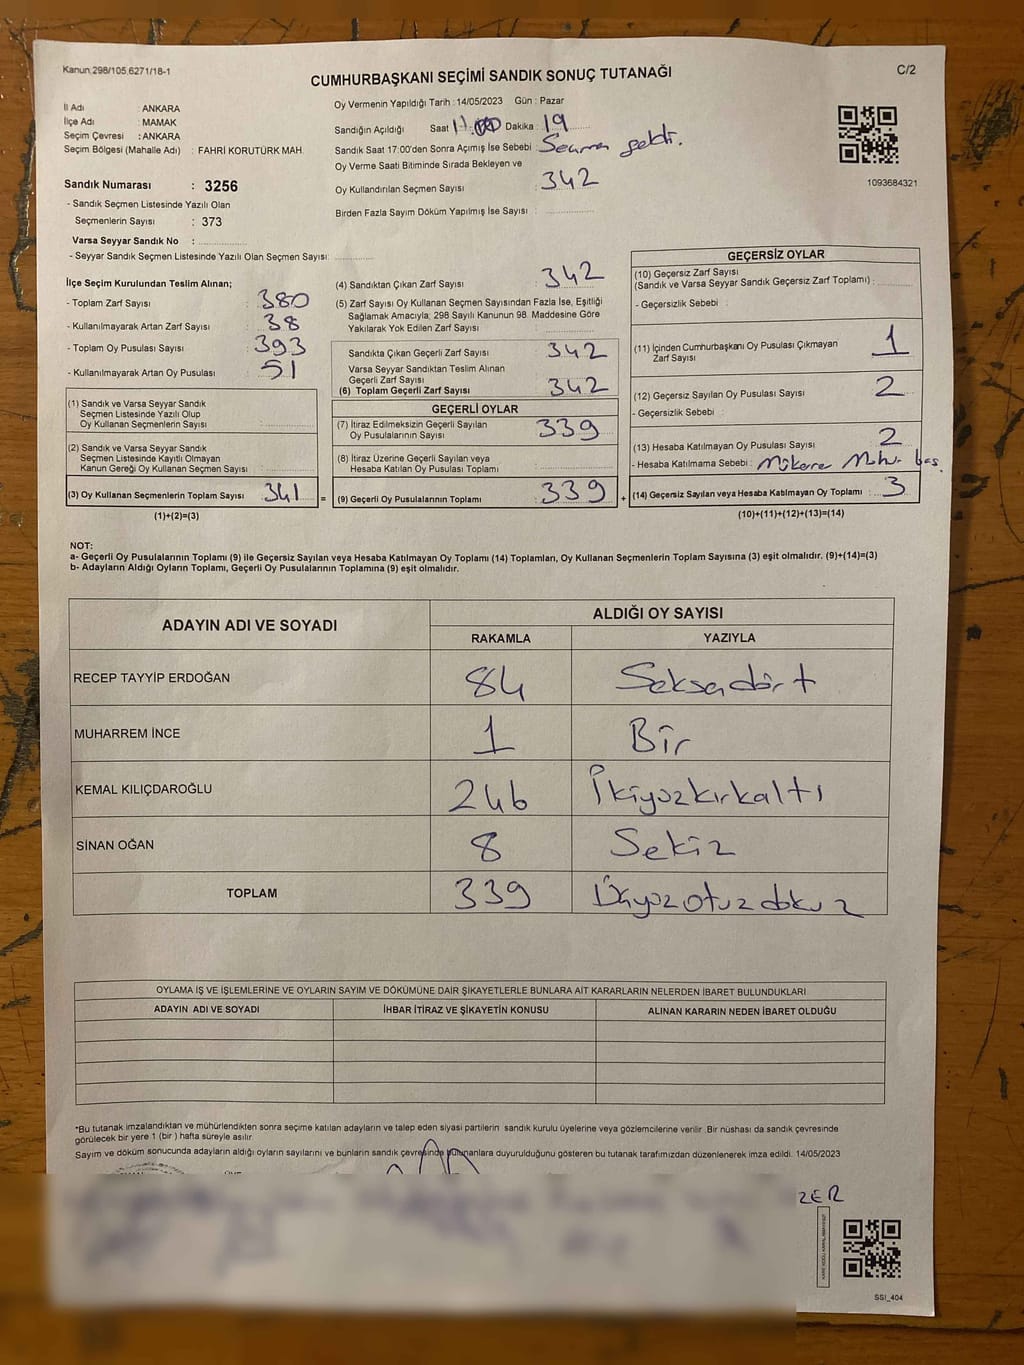 Kanun 298/105,6271/18-1
C/2
CUMHURBAŞKANI SEÇİMİ SANDIK SONUÇ TUTANAĞI
İl Adı : ANKARA
İlçe Adı : MAMAK
Seçim Çevresi : ANKARA
Seçim Bölgesi (Mahalle Adı) : FAHRİ KORUTÜRK MAH.
Oy Vermenin Yapıldığı Tarih : 14/05/2023 Gün : Pazar
Sandığın Açıldığı Saat Dakika : 19
Sandık Saat 17:00'den Sonra Açımış İse Sebebi :
Oy Verme Saati Bitiminde Sırada Bekleyen ve
Oy Kullandırılan Seçmen Sayısı : 342
Birden Fazla Sayım Döküm Yapılmış İse Sayısı :
1093684321
Sandık Numarası : 3256
- Sandık Seçmen Listesinde Yazılı Olan
Seçmenlerin Sayısı : 373
Varsa Seyyar Sandık No :
- Seyyar Sandık Seçmen Listesinde Yazılı Olan Seçmen Sayısı:
İlçe Seçim Kurulundan Teslim Alınan;
- Toplam Zarf Sayısı : 380
- Kullanılmayarak Artan Zarf Sayısı : 38
- Toplam Oy Pusulası Sayısı : 393
- Kullanılmayarak Artan Oy Pusulası : 51
(1) Sandık ve Varsa Seyyar Sandık
Seçmen Listesinde Yazılı Olup
Oy Kullanan Seçmenlerin Sayısı :
(2) Sandık ve Varsa Seyyar Sandık
Seçmen Listesinde Kayıtlı Olmayan
Kanun Gereği Oy Kullanan Seçmen Sayısı :
(3) Oy Kullanan Seçmenlerin Toplam Sayısı : 341 =
(1)+(2)=(3)
(4) Sandıktan Çıkan Zarf Sayısı : 342
(5) Zarf Sayısı Oy Kullanan Seçmen Sayısından Fazla İse, Eşitliği
Sağlamak Amacıyla; 298 Sayılı Kanunun 98. Maddesine Göre
Yakılarak Yok Edilen Zarf Sayısı :
Sandıkta Çıkan Geçerli Zarf Sayısı : 342
Varsa Seyyar Sandıktan Teslim Alınan
Geçerli Zarf Sayısı :
(6) Toplam Geçerli Zarf Sayısı : 342
GEÇERLİ OYLAR
(7) İtiraz Edilmeksizin Geçerli Sayılan
Oy Pusulalarının Sayısı : 339
(8) İtiraz Üzerine Geçerli Sayılan veya
Hesaba Katılan Oy Pusulası Toplamı :
(9) Geçerli Oy Pusulalarının Toplamı : 339 +
GEÇERSİZ OYLAR
(10) Geçersiz Zarf Sayısı
(Sandık ve Varsa Seyyar Sandık Geçersiz Zarf Toplamı) :
- Geçersizlik Sebebi :
(11) İçinden Cumhurbaşkanı Oy Pusulası Çıkmayan
Zarf Sayısı : 1
(12) Geçersiz Sayılan Oy Pusulası Sayısı : 2
- Geçersizlik Sebebi :
(13) Hesaba Katılmayan Oy Pusulası Sayısı : 2
- Hesaba Katılmama Sebebi :
(14) Geçersiz Sayılan veya Hesaba Katılmayan Oy Toplamı : 3
(10)+(11)+(12)+(13)=(14)
NOT:
a- Geçerli Oy Pusulalarının Toplamı (9) ile Geçersiz Sayılan veya Hesaba Katılmayan Oy Toplamı (14) Toplamları, Oy Kullanan Seçmenlerin Toplam Sayısına (3) eşit olmalıdır. (9)+(14)=(3)
b- Adayların Aldığı Oyların Toplamı, Geçerli Oy Pusulalarının Toplamına (9) eşit olmalıdır.
ADAYIN ADI VE SOYADI ALDIĞI OY SAYISI
RAKAMLA YAZIYLA
RECEP TAYYİP ERDOĞAN 84 Seksedört
MUHARREM İNCE 1 Bir
KEMAL KILIÇDAROĞLU 246 İkiyüzkırkaltı
SİNAN OĞAN 8 Sekiz
TOPLAM 339 Üçyüzotuzdokuz
OYLAMA İŞ VE İŞLEMLERİNE VE OYLARIN SAYIM VE DÖKÜMÜNE DAİR ŞİKAYETLERLE BUNLARA AİT KARARLARIN NELERDEN İBARET BULUNDUKLARI
ADAYIN ADI VE SOYADI İHBAR İTİRAZ VE ŞİKAYETİN KONUSU ALINAN KARARIN NEDEN İBARET OLDUĞU
*Bu tutanak imzalandıktan ve mühürlendikten sonra seçime katılan adayların ve talep eden siyasi partilerin sandık kurulu üyelerine veya gözlemcilerine verilir .Bir nüshası da sandık çevresinde
görülecek bir yere 1 (bir ) hafta süreyle asılır
Sayım ve döküm sonucunda adayların aldığı oyların sayılarını ve bunların sandık çevresinde bulunanlara duyurulduğunu gösteren bu tutanak tarafımızdan düzenlenerek imza edildi. 14/05/2023
ZER
SSI_404